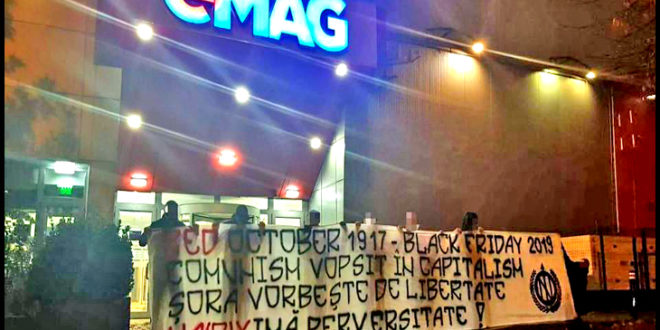 eMAG
RED OCTOBER 1917 - BLACK FRIDAY 2019
COMUNISM VOPSIT IN CAPITALISM
ȘORA VORBEȘTE DE LIBERTATE
MARXIMĂ PERVERSITATE !